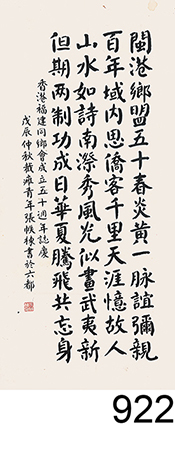 閩港鄉盟五十春炎黃一脉誼彌親
百年域內思僑客千里天涯憶故人
山水如詩南漈秀風光似畫武夷新
但期两制功成日華夏騰飛共忘身
香港福建同鄉會成立五十週年誌慶
戊辰仲秋戴雍青年張帙棟書於六都
922